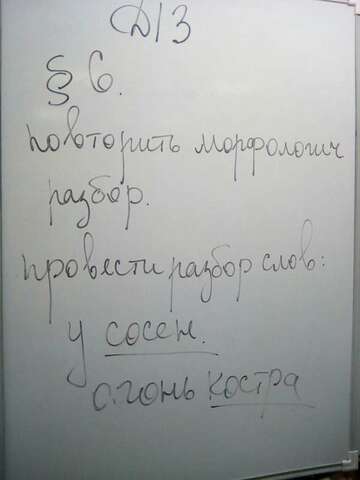 Д/З
§ 6.
повторить морфологич
разбор.
провести разбор слов:
у сосен.
огонь костра